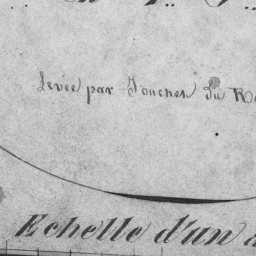 Levée par Touches Du R
Echelle d'un